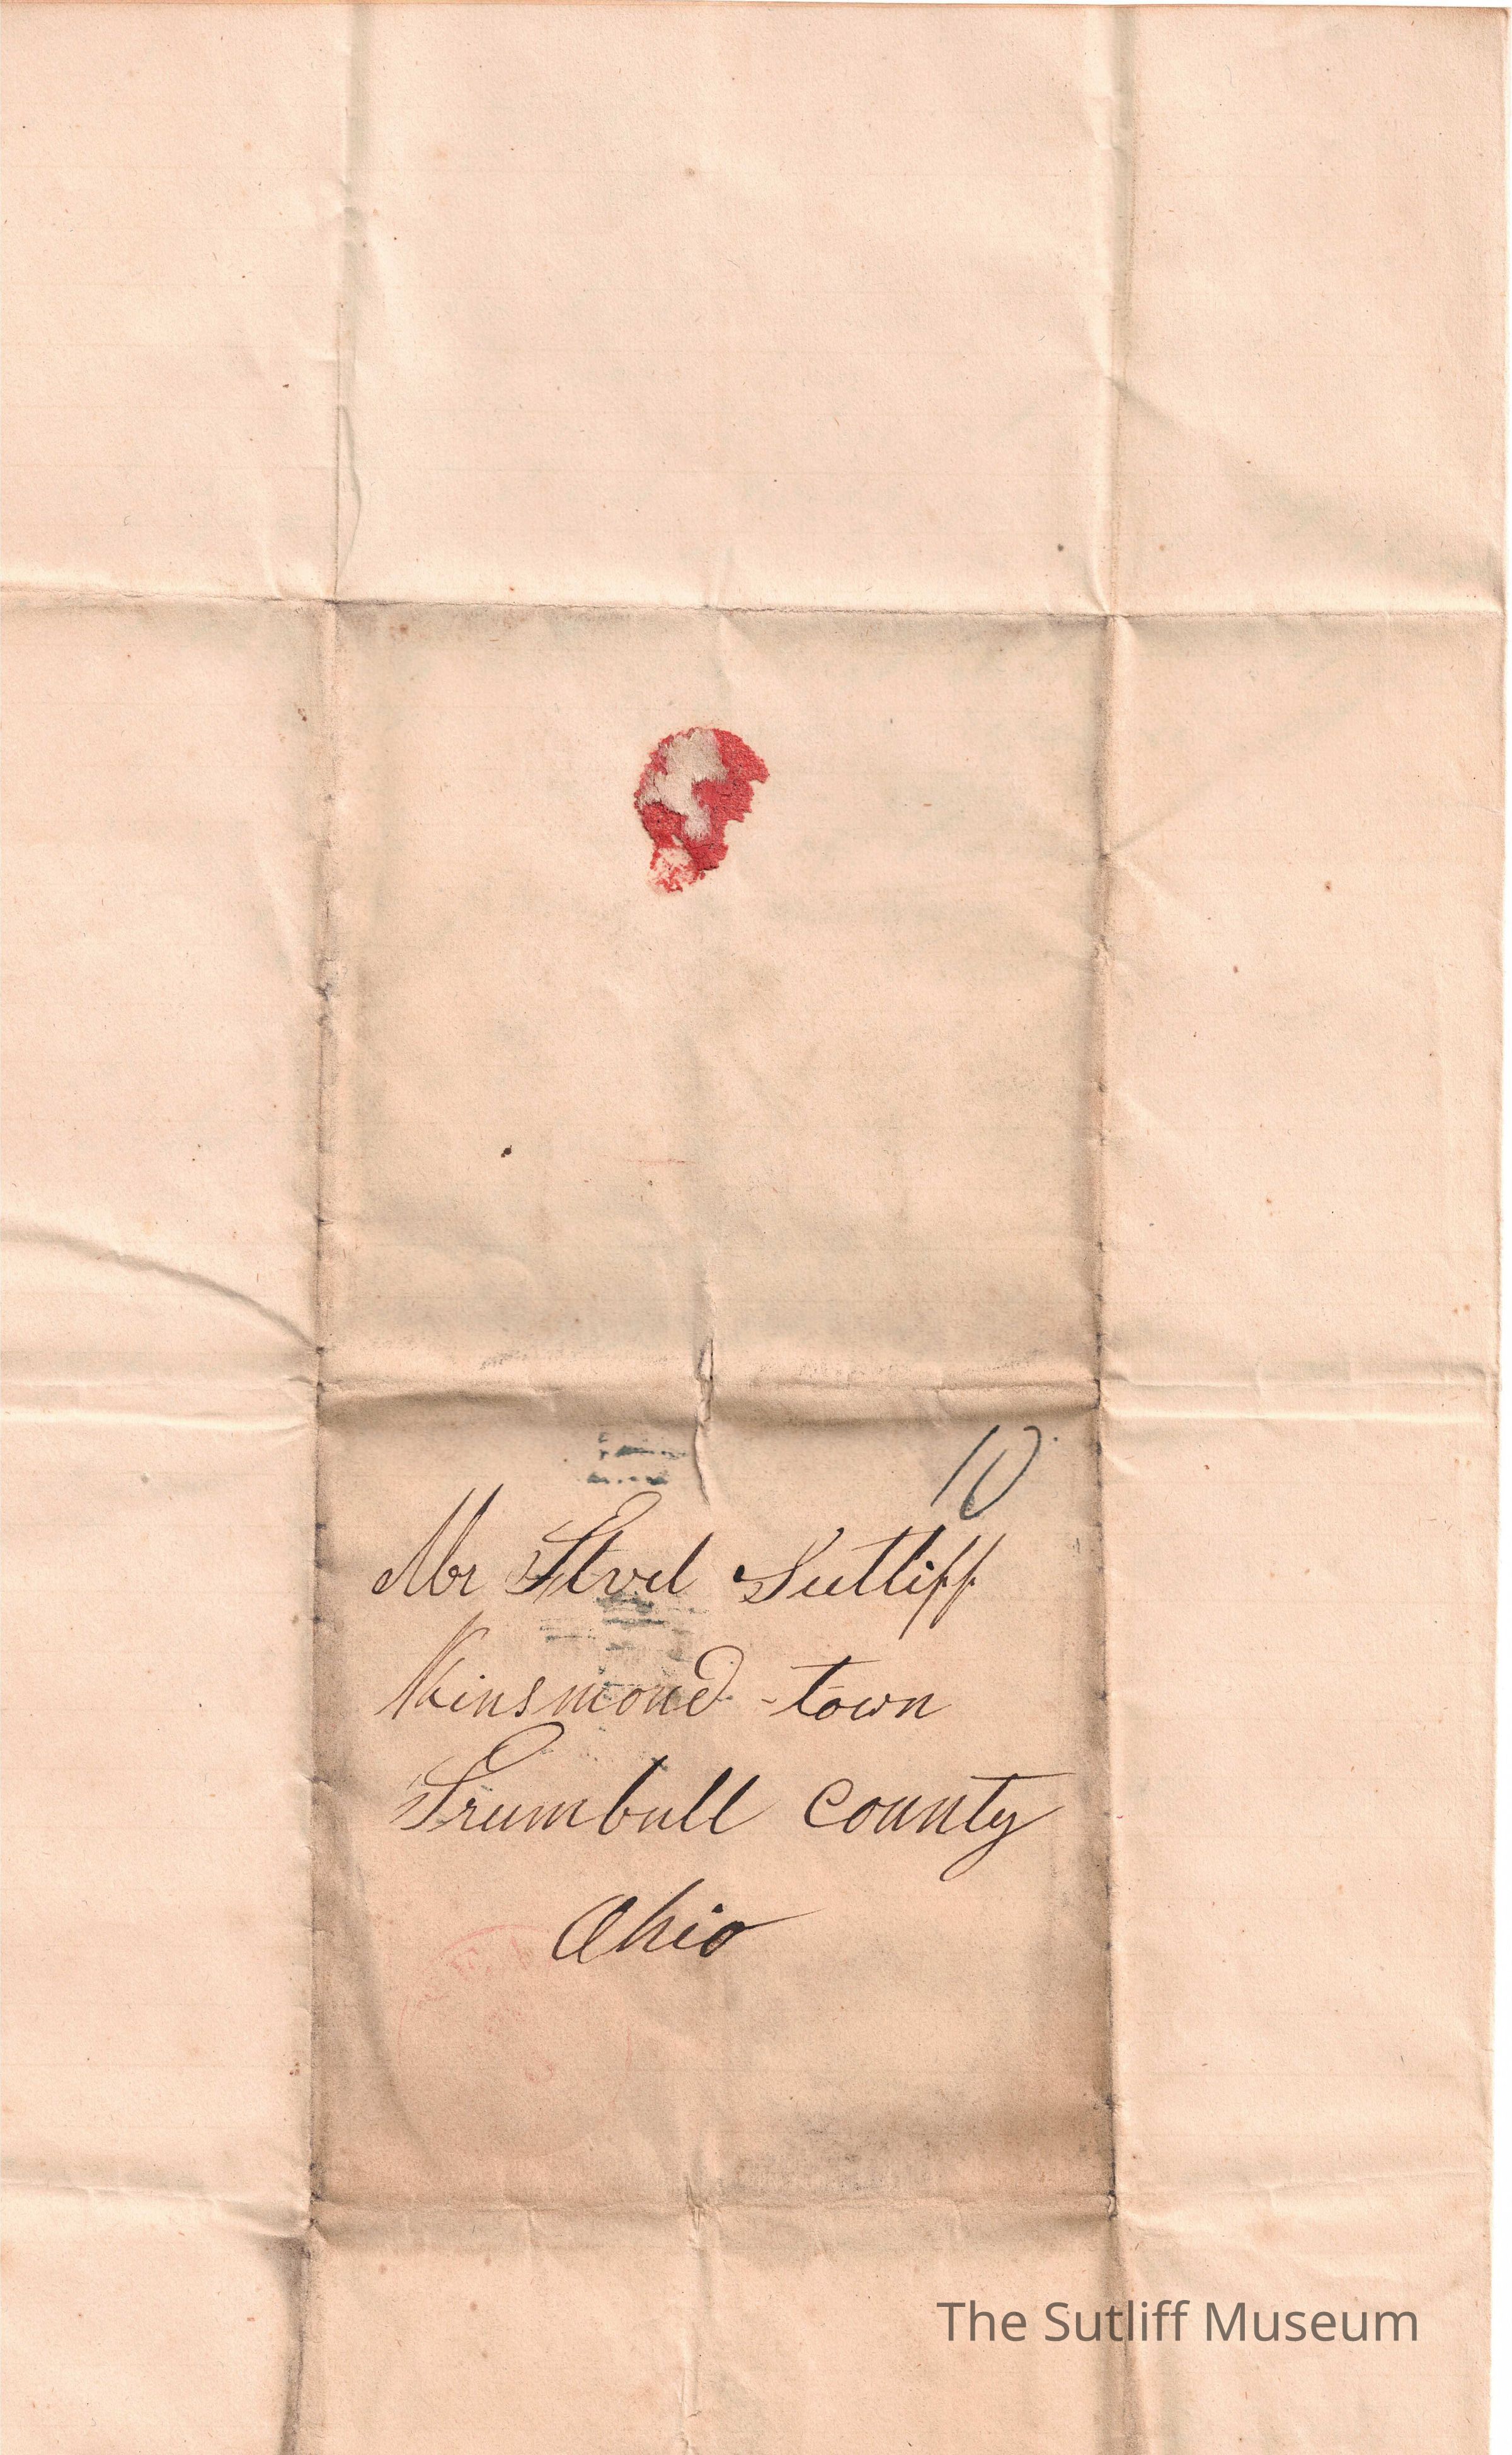 10
Mr Flvel Sutliff
Kinsmond - town
Trumbull county
Ohio
The Sutliff Museum